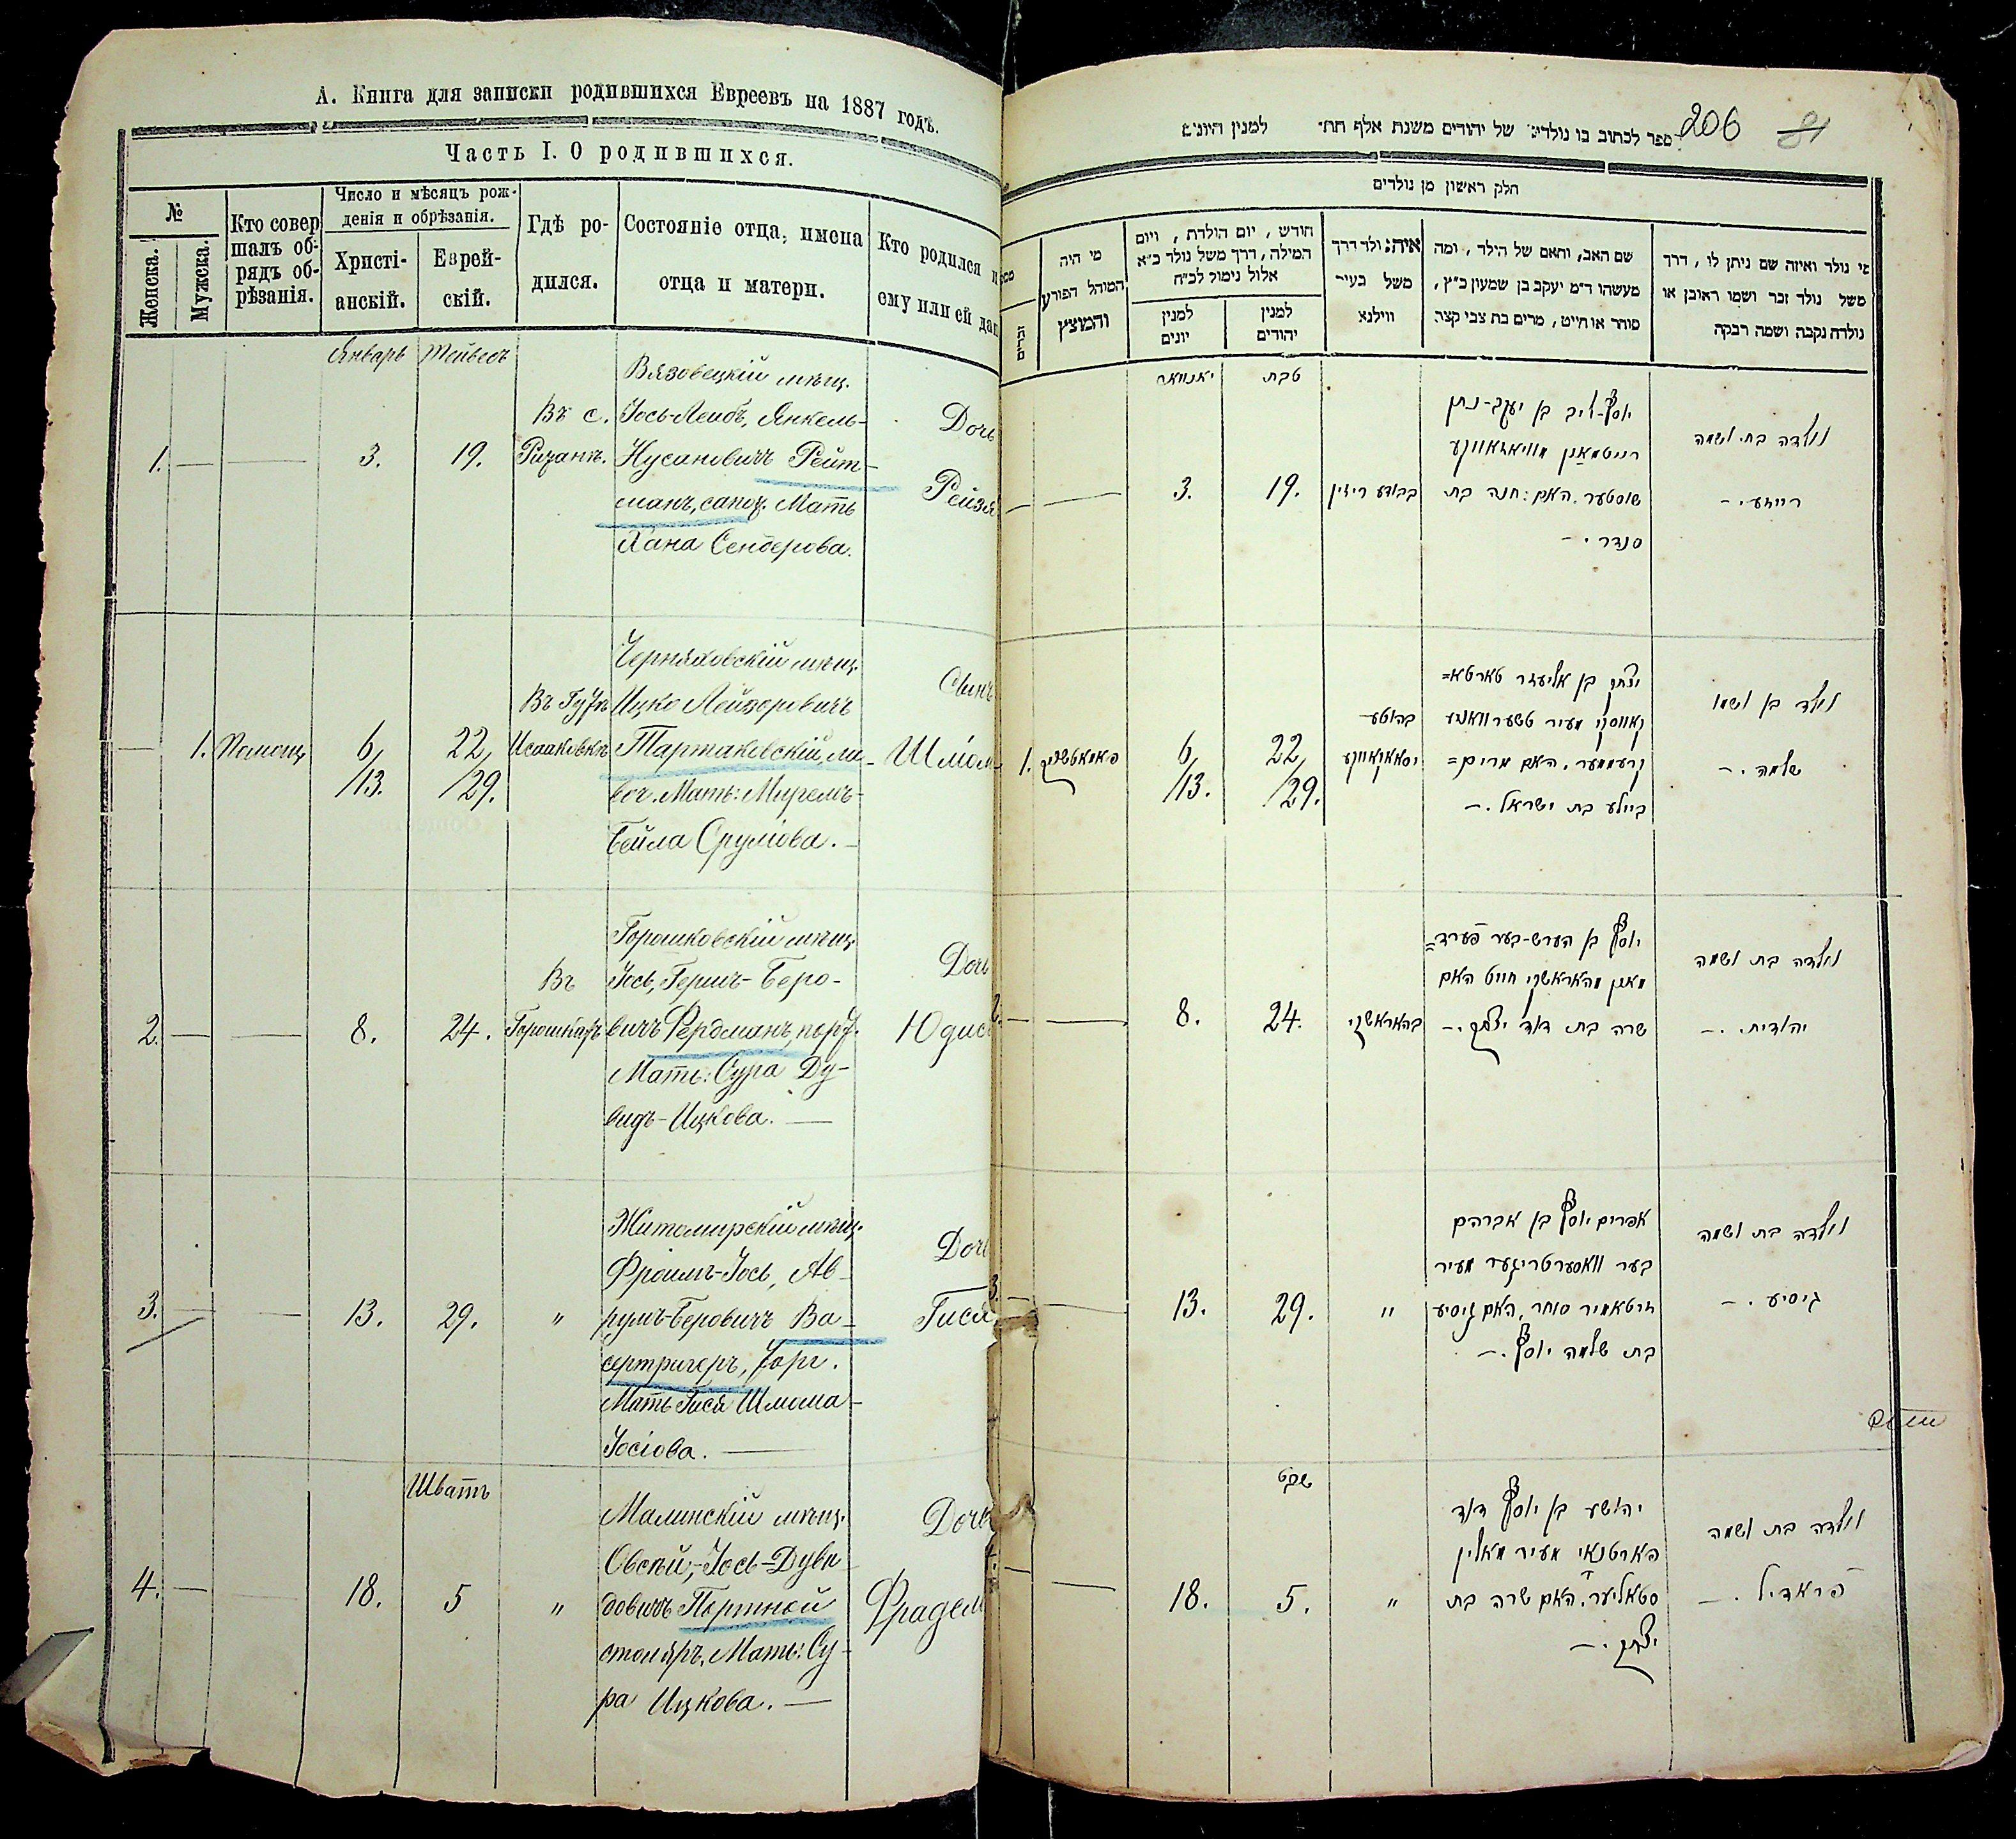 А. Книга для записки родившихся Евреевъ на 1887 годъ.
Часть I. О родившихся.
№
Женска.
Мужска.
Кто совер
шалъ об-
рядъ об-
рѣзанія.
Число и мѣсяцъ рож-
денія и обрѣзанія.
Христі-
анскій.
Еврей-
скій.
Гдѣ ро-
дился.
Состояніе отца, имена
отца и матери.
Кто родился и
ему или ей да
Январь
Тейвесъ
1.
3.
19.
Въ с.
Вязовецкій мѣщ.
Іось-Лейбъ, Янкель-
Нусановичъ Рейт-
манъ, сапож. Мать
Хана Сендерова.
Дочь
Рейзя
1.
6/13.
22/29.
Черняховскій мѣщ.
Ицко Лейзеровичъ
Тартаковскій,
Мать: Миремъ-
Бейла Сруліова.
Сынъ
Шліом
2.
8.
24.
Въ
Горошковскій мѣщ.
Іось, Гершъ-Беро-
вичъ Фердманъ, порт.
Мать: Сура Ду-
видъ-Ицкова.
Дочь
Юдис
3.
13.
29.
"
Житомирскій мѣщ.
Фроимъ-Іось, Ав-
румъ-Беровичъ Ва-
сертригеръ, торг.
Мать Гися Шлома-
Іосіова.
Дочь
Гися
Шватъ
4.
18.
5
"
Малинскій мѣщ.
Овсѣй, Іось-Дуви-
довичъ Портной
столяръ, Мать: Су-
ра Ицкова.
Дочь
Фрадель
206
ספר לכתוב בו נולדים של יהודים משנת אלף תת למנין היונים
חלק ראשון מן נולדים
מי נולד ואיזה שם ניתן לו, דרך
משל נולד זכר ושמו ראובן או
נולדת נקבה ושמה רבקה
שם האב, והאם של הילד, ומה
מעשהו ד״מ יעקב בן שמעון כ״ץ,
סוחר או חייט, מרים בת צבי קצב
איה: ולד דרך
משל בעיר
ווילנא
חודש, יום הולדת, ויום
המילה, דרך משל נולד כ״א
אלול נימול לכ״ח
למנין
יהודים
למנין
יונים
מי היה
המוהל הפורע
והמוצץ
זכרים
טבת
יאנוואר
נולדה בת ושמה
רייזע
יוסף-ליב בן יעקב-נתן
רייטמאן
שוסטער. האם: חנה בת
סנדר
19.
3.
נולד בן ושמו
שלמה
יצחק בן אליעזר טארטא=
האם מרים=
ביילע בת ישראל
22/29.
6/13.
1.
נולדה בת ושמה
יהודית
יוסף בן הערש-בער פערד=
מאן מהאראשקי חייט האם
שרה בת דוד יצחק
בהאראשקי
24.
8.
נולדה בת ושמה
גיסיע
אפרים יוסף בן אברהם
בער וואסערטריגער מעיר
סוחר, האם גיסיע
בת שלמה יוסף
"
29.
13.
שבט
נולדה בת ושמה
פראדיל
יהושע בן יוסף דוד
פארטנאי מעיר מאלין
סטאליער, האם שרה בת
יצחק
"
5.
18.